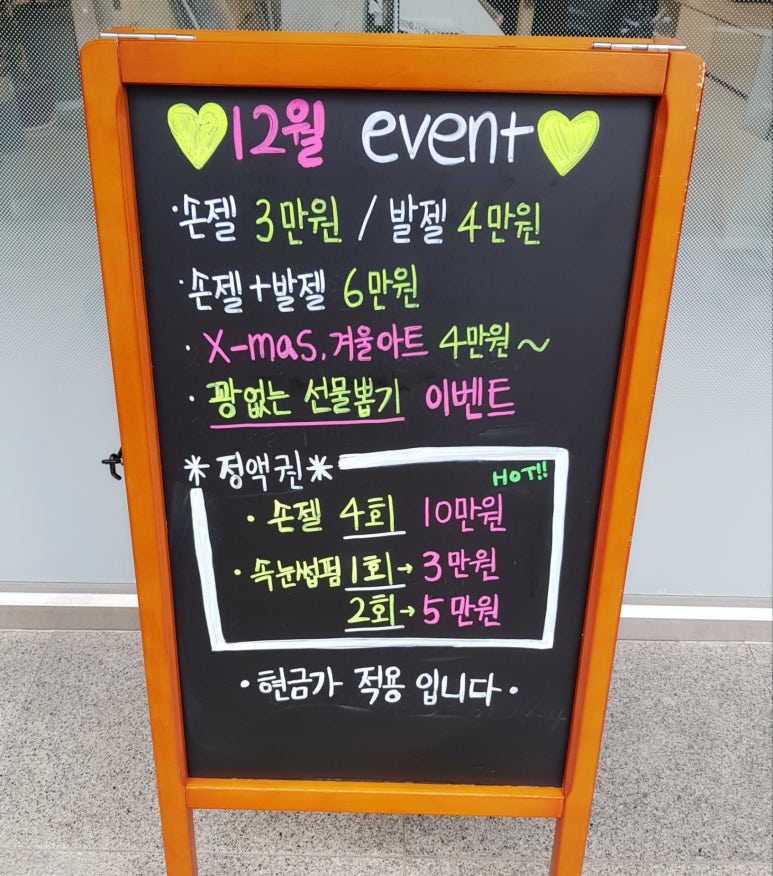 12월 event
·손젤 3만원 / 발젤 4만원
·손젤+발젤 6만원
· X-mas, 겨울아트 4만원~
· 꽝없는 선물뽑기 이벤트
*정액권*
HOT!!
· 손젤 4회 10만원
· 속눈썹펌 1회→3만원
2회→5만원
· 현금가 적용 입니다 ·